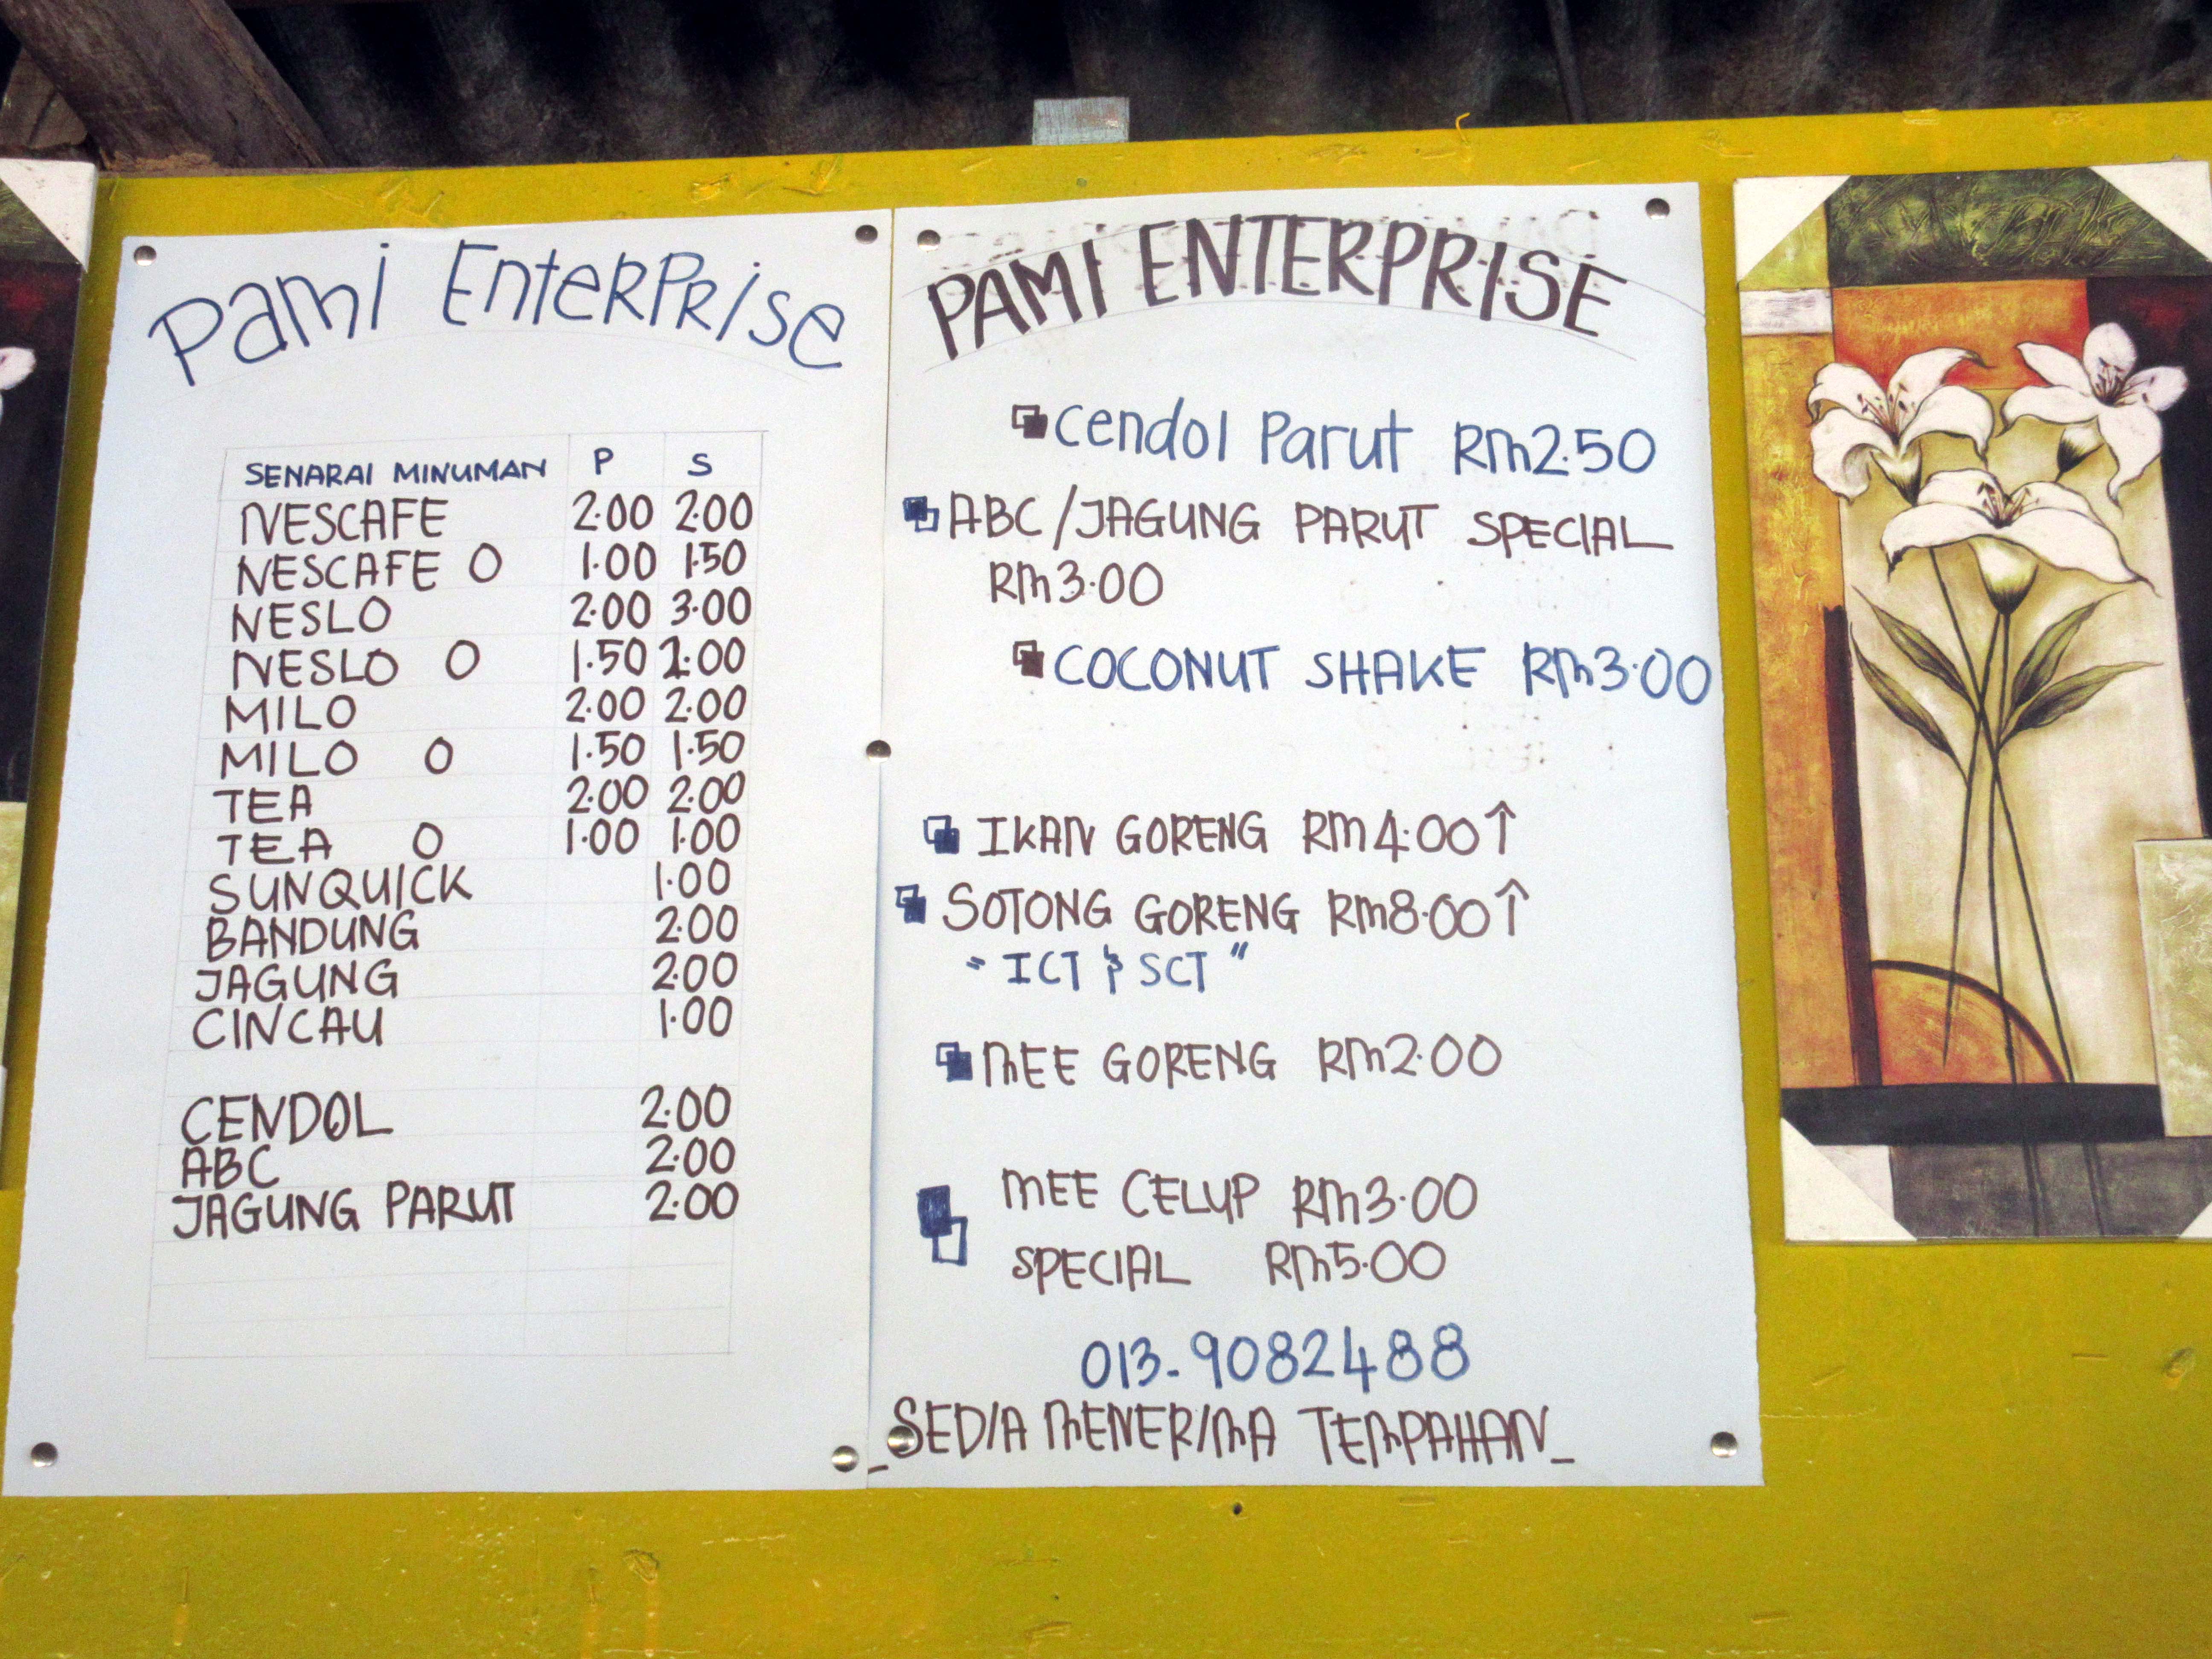 Pami Enterprise
SENARAI MINUMAN P S
NESCAFE 2.00 2.00
NESCAFE O 1.00 1.50
NESLO 2.00 3.00
NESLO O 1.50 2.00
MILO 2.00 2.00
MILO O 1.50 1.50
TEA 2.00 2.00
TEA O 1.00 1.00
SUNQUICK 1.00
BANDUNG 2.00
JAGUNG 2.00
CINCAU 1.00
CENDOL 2.00
ABC 2.00
JAGUNG PARUT 2.00
PAMI ENTERPRISE
Cendol Parut RM2.50
ABC/JAGUNG PARUT SPECIAL
RM3.00
COCONUT SHAKE RM3.00
IKAN GORENG RM4.00↑
SOTONG GORENG RM8.00↑
"ICT & SCT"
MEE GORENG RM2.00
MEE CELUP RM3.00
SPECIAL RM5.00
013-9082488
_SEDIA MENERIMA TEMPAHAN_